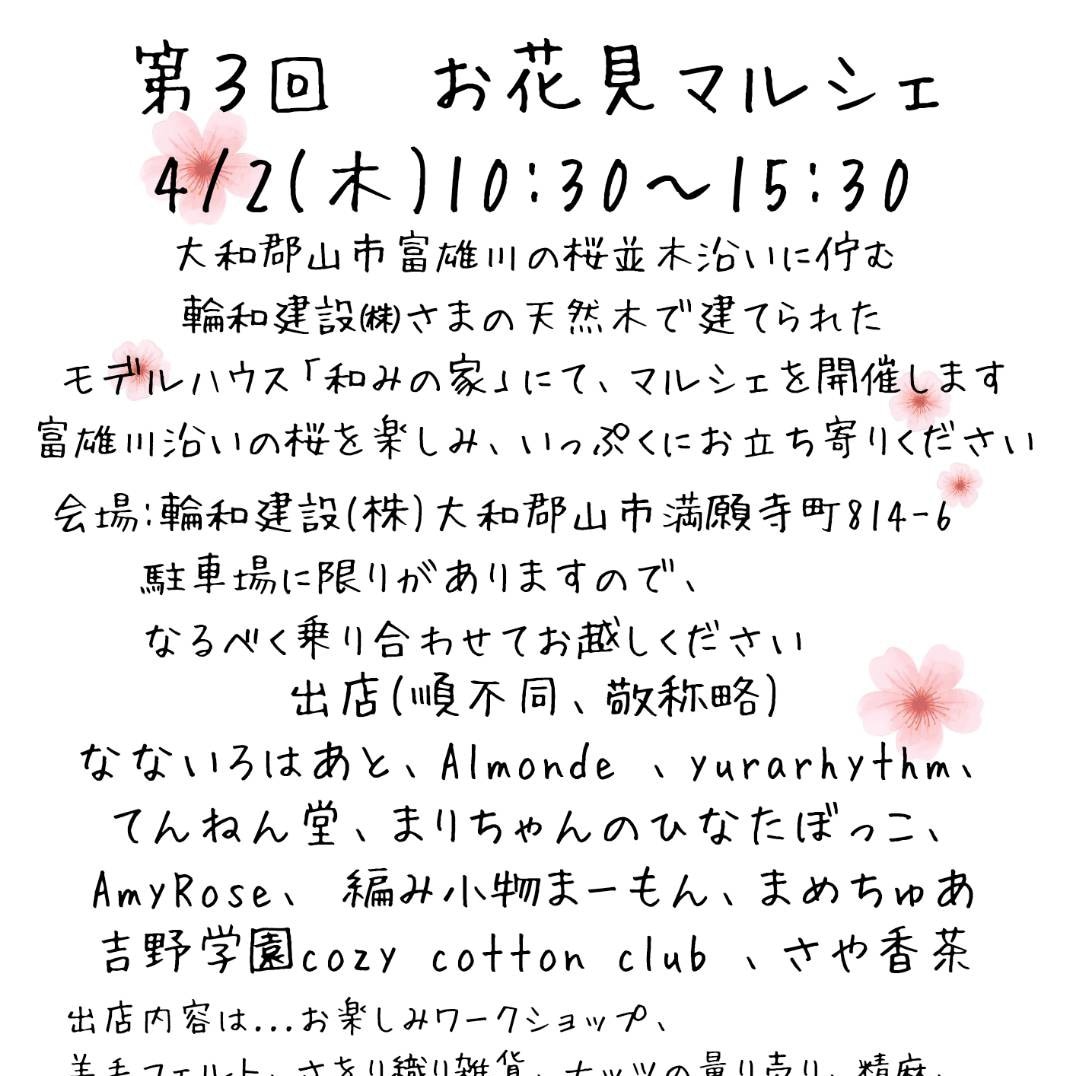 第3回　お花見マルシェ
4/2(木)10:30〜15:30
大和郡山市富雄川の桜並木沿いに佇む
輪和建設㈱さまの天然木で建てられた
モデルハウス「和みの家」にて、マルシェを開催します
富雄川沿いの桜を楽しみ、いっぷくにお立ち寄りください
会場:輪和建設(株)大和郡山市満願寺町814-6
駐車場に限りがありますので、
なるべく乗り合わせてお越しください
出店(順不同、敬称略)
なないろはあと、Almonde 、yurarhythm、
てんねん堂、まりちゃんのひなたぼっこ、
AmyRose、 編み小物まーもん、まめちゅあ
吉野学園cozy cotton club 、さや香茶
出店内容は...お楽しみワークショップ、
羊毛フェルト、さをり織り雑貨、ナッツの量り売り、精麻、